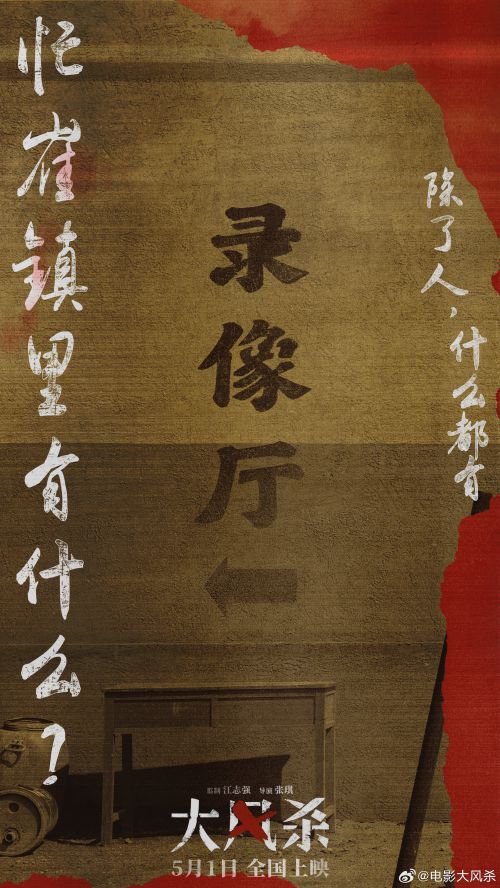 忙崖镇里有什么？
除了人，什么都有
录像厅
监制 江志强 导演 张琪
大风杀
5月1日 全国上映
@电影大风杀